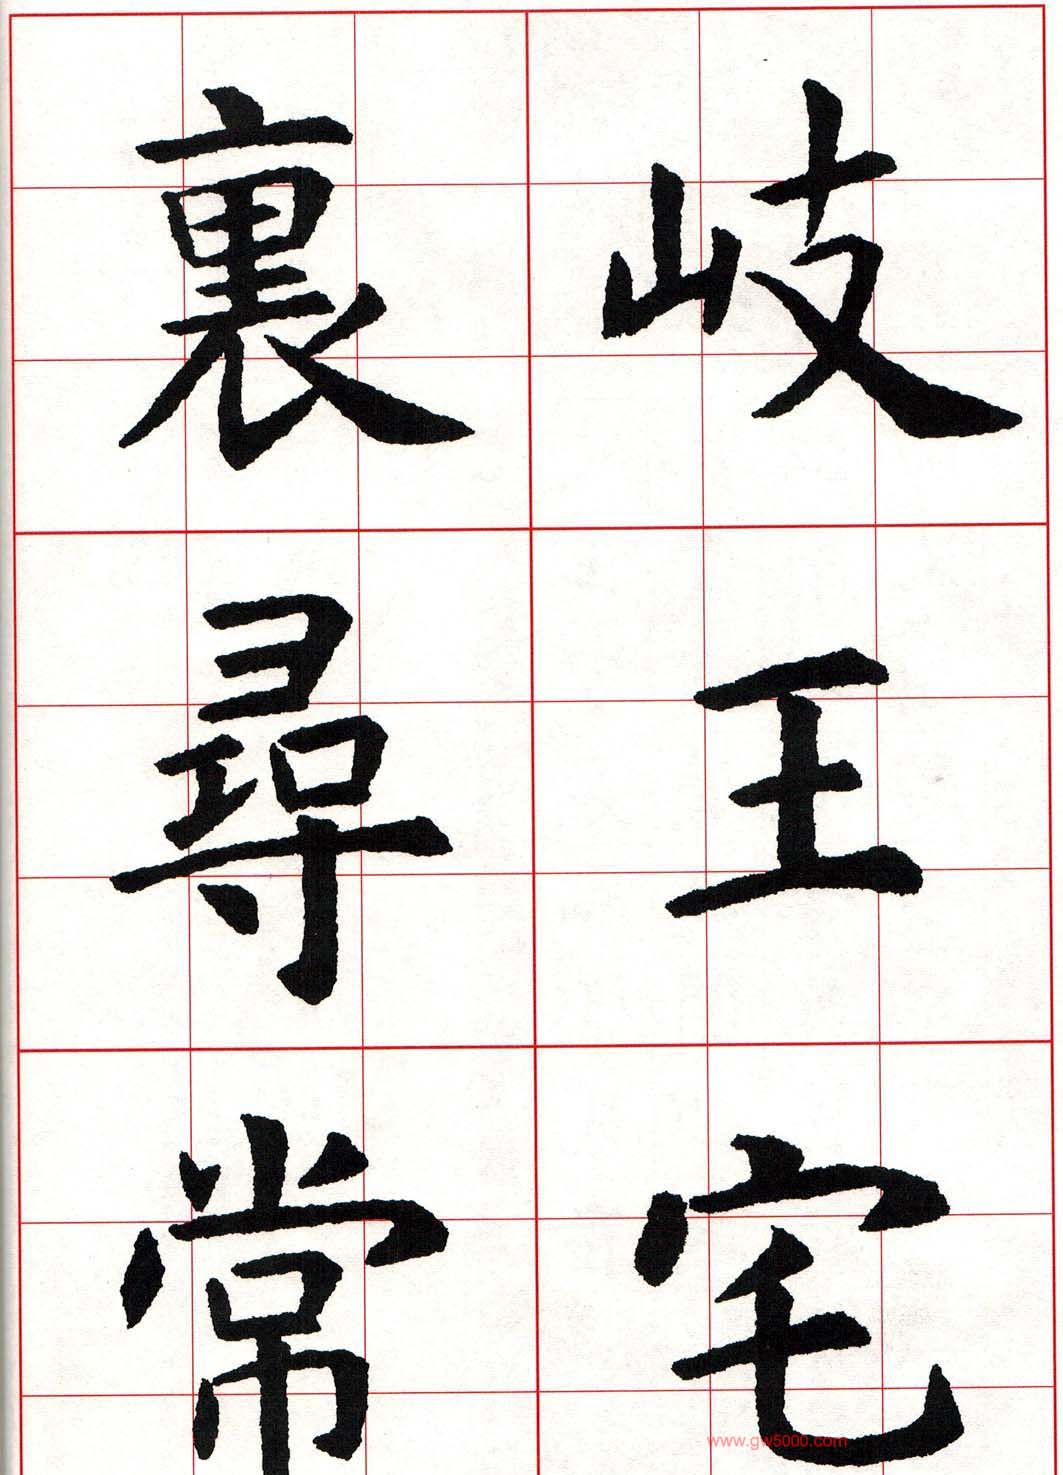 岐王宅
裏尋常
www.gw5000.com